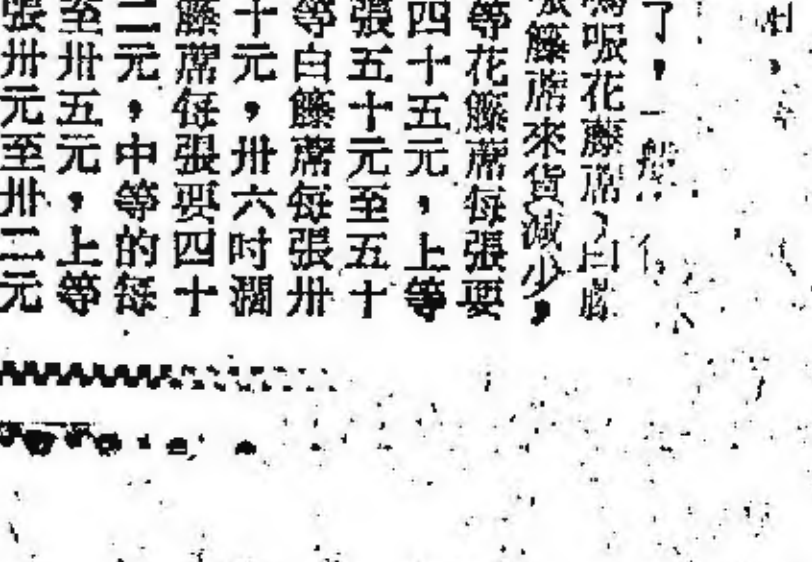 了，一般
呢花藤蓆
籐蓆來貨減少，
等花籐蓆每張要
四十五元，上等
張五十元至五十
等白籐蓆每張卅
十元，卅六吋濶
藤蓆每張要四十
二元，中等的每
至卅五元，上等
張卅元至卅二元